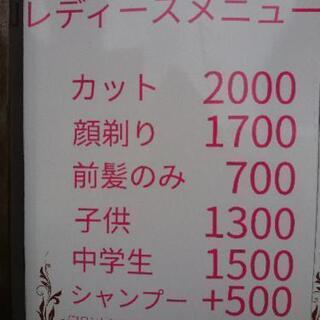 レディースメニュー
カット 2000
顔剃り 1700
前髪のみ 700
子供 1300
中学生 1500
シャンプー +500